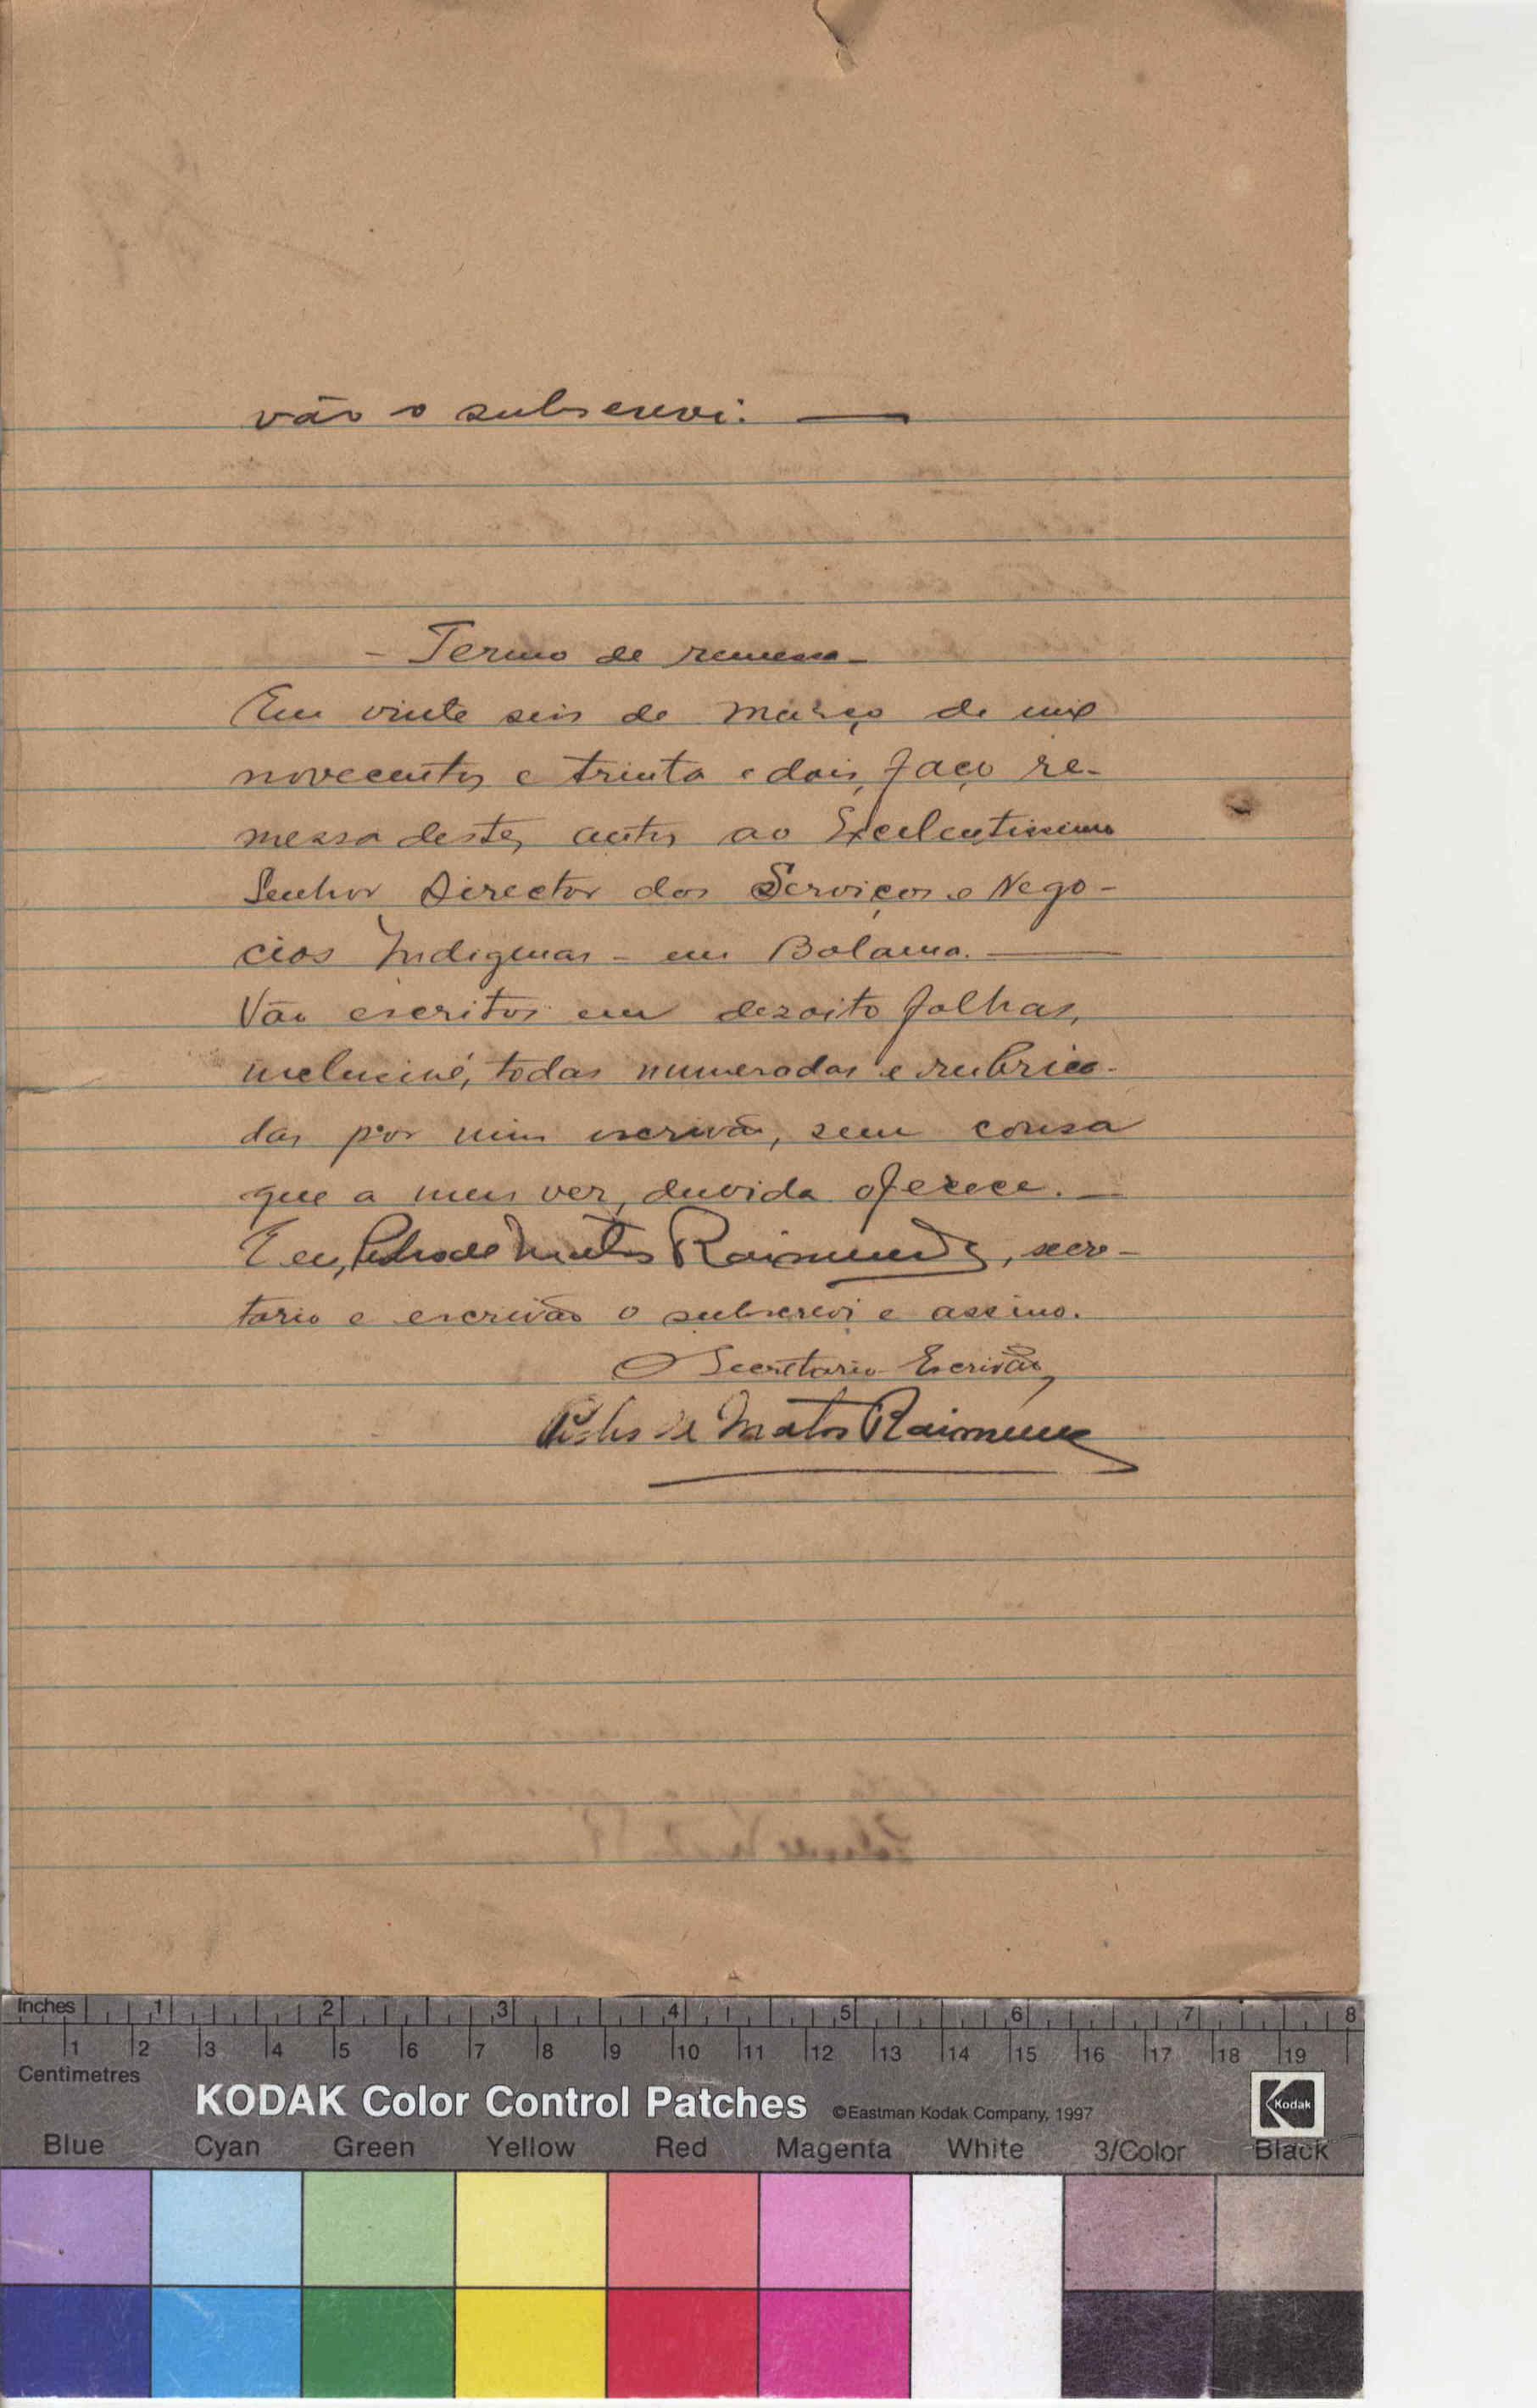 vão o subscrevi. —
- Termo de remessa -
Em vinte seis de Março de mil
novecentos e trinta e dois, faço re-
messa destes autos ao Excelentissimo
Senhor Director dos Serviços e Nego-
cios Indigenas - em Bolama. —
Vão escritos em dezoito folhas,
inclusivé, todas numeradas e rubrica-
das por mim escrivão, sem cousa
que a meu ver, duvida ofereça. —
E eu, Pedro de Matos Raimundo, secre-
tario e escrivão o subscrevi e assino.
O Secretario Escrivão,
Pedro de Matos Raimundo
Inches 1 2 3 4 5 6 7 8
1 2 3 4 5 6 7 8 9 10 11 12 13 14 15 16 17 18 19
Centimetres
KODAK Color Control Patches ©Eastman Kodak Company, 1997 Kodak
Blue Cyan Green Yellow Red Magenta White 3/Color Black